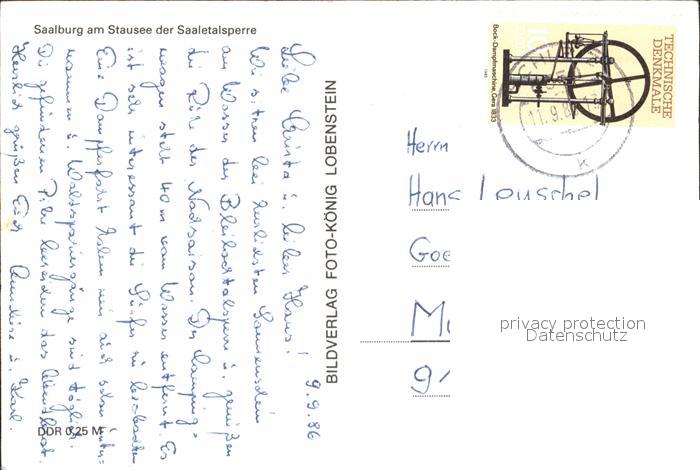 Saalburg am Stausee der Saaletalsperre
9.9.86
Liebe Christa u. lieber Hans!
Wir sitzen bei herrlichstem Sonnenschein
am Wasser der Bleilochtalsperre u. genießen
die Ruhe der Nachsaison. Der Camping=
wagen steht 40 m vom Wasser entfernt. Es
ist sehr interessant die Surfer zu beobachten.
Eine Dampferfahrt haben wir auch schon unter=
nommen u. Waldspaziergänge sind täglich.
Die gefundenen Pilze bereichern das Abendbrot.
Herzlich grüßen Euch Annelise u. Karl.
DDR 0,25 M
BILDVERLAG FOTO-KÖNIG LOBENSTEIN
TECHNISCHE
DENKMALE
10
DDR
Bock-Dampfmaschine, Gera 1833
1985
11.9.8
K
Herrn
Hans Leuschel
Goe
M
9
privacy protection
Datenschutz